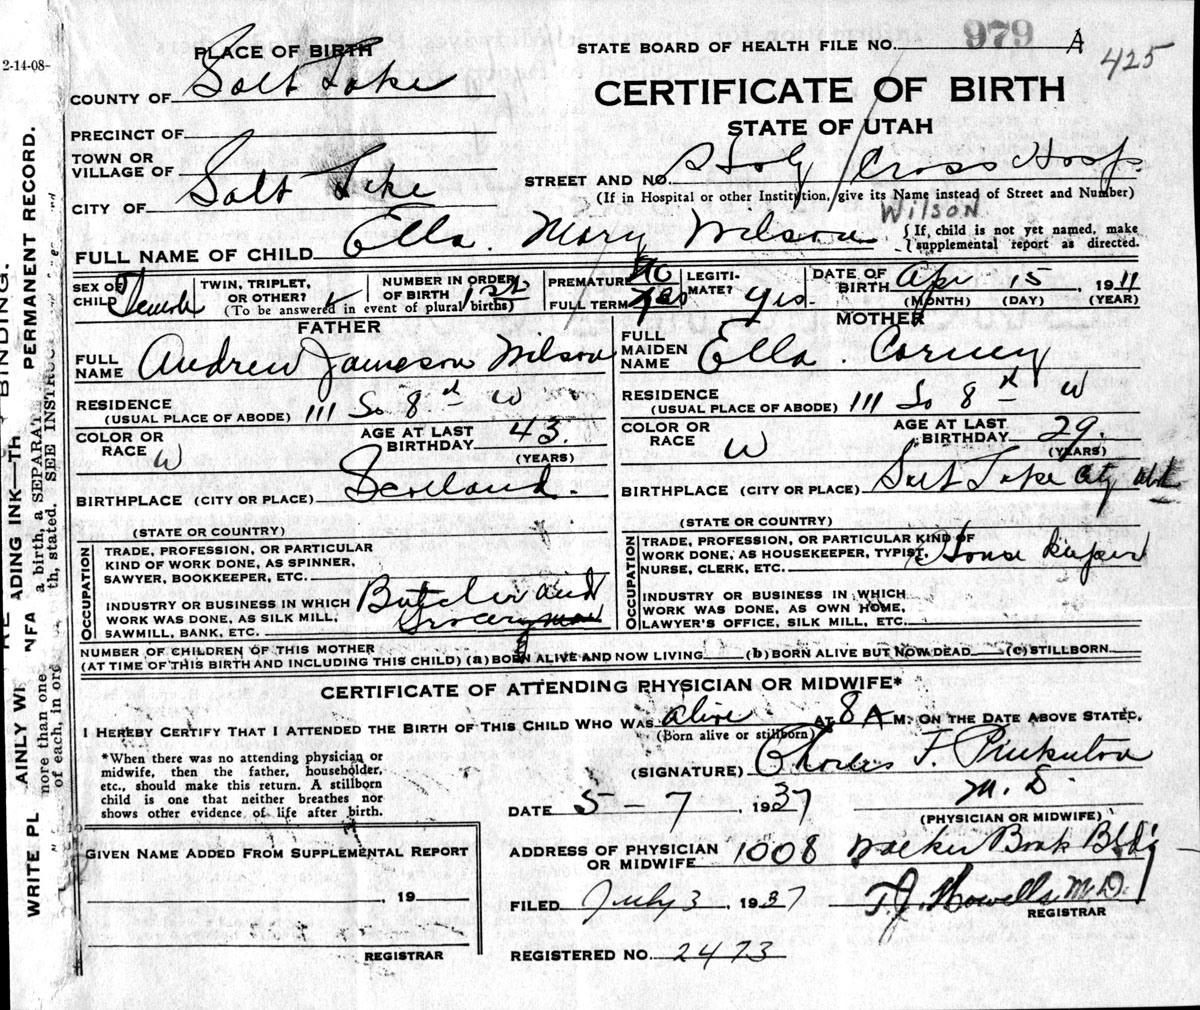 979 A
425
2-14-08-
PLACE OF BIRTH
STATE BOARD OF HEALTH FILE NO.
COUNTY OF Salt Lake
CERTIFICATE OF BIRTH
STATE OF UTAH
PRECINCT OF
TOWN OR
VILLAGE OF
STREET AND NO. Holy Cross Hosp
(If in Hospital or other Institution, give its Name instead of Street and Number)
CITY OF Salt Lake
Wilson
FULL NAME OF CHILD Ella Mary Wilson
{ If, child is not yet named, make
supplemental report as directed.
SEX OF
CHILD Female
TWIN, TRIPLET,
OR OTHER?
NUMBER IN ORDER
OF BIRTH
(To be answered in event of plural births)
PREMATURE No
FULL TERM Yes
LEGITI-
MATE? Yes.
DATE OF
BIRTH Apr 15, 1911
(MONTH) (DAY) (YEAR)
FATHER
FULL
NAME Andrew Jameson Wilson
RESIDENCE
(USUAL PLACE OF ABODE) 111 So 8th W
COLOR OR
RACE W
AGE AT LAST
BIRTHDAY 43.
(YEARS)
BIRTHPLACE (CITY OR PLACE) Scotland.
(STATE OR COUNTRY)
OCCUPATION
TRADE, PROFESSION, OR PARTICULAR
KIND OF WORK DONE, AS SPINNER,
SAWYER, BOOKKEEPER, ETC.
INDUSTRY OR BUSINESS IN WHICH
WORK WAS DONE, AS SILK MILL,
SAWMILL, BANK, ETC.
Butcher and
Groceryman
MOTHER
FULL
MAIDEN
NAME Ella
RESIDENCE
(USUAL PLACE OF ABODE) 111 So 8th W
COLOR OR
RACE W
AGE AT LAST
BIRTHDAY 29.
(YEARS)
BIRTHPLACE (CITY OR PLACE) Salt Lake City Utah
(STATE OR COUNTRY)
OCCUPATION
TRADE, PROFESSION, OR PARTICULAR KIND OF
WORK DONE, AS HOUSEKEEPER, TYPIST,
NURSE, CLERK, ETC. House Keeper
INDUSTRY OR BUSINESS IN WHICH
WORK WAS DONE, AS OWN HOME,
LAWYER'S OFFICE, SILK MILL, ETC.
NUMBER OF CHILDREN OF THIS MOTHER
(AT TIME OF THIS BIRTH AND INCLUDING THIS CHILD) (a) BORN ALIVE AND NOW LIVING (b) BORN ALIVE BUT NOW DEAD (c) STILLBORN
CERTIFICATE OF ATTENDING PHYSICIAN OR MIDWIFE*
I HEREBY CERTIFY THAT I ATTENDED THE BIRTH OF THIS CHILD WHO WAS alive AT 8 A M. ON THE DATE ABOVE STATED.
(Born alive or stillborn)
*When there was no attending physician or
midwife, then the father, householder,
etc., should make this return. A stillborn
child is one that neither breathes nor
shows other evidence of life after birth.
(SIGNATURE) Charles F. Pinkerton
M. D
(PHYSICIAN OR MIDWIFE)
DATE 5-7, 1937
ADDRESS OF PHYSICIAN
OR MIDWIFE 1008 Walker Bank Bldg
GIVEN NAME ADDED FROM SUPPLEMENTAL REPORT
, 19
REGISTRAR
FILED July 3, 1937
T. J. Howells M.D.
REGISTRAR
REGISTERED NO. 2473
WRITE PL AINLY WI ADING INK—TH PERMANENT RECORD.
BINDING.
more than one a birth, a SEPARAT
of each, in ord th, stated. SEE INSTRUC